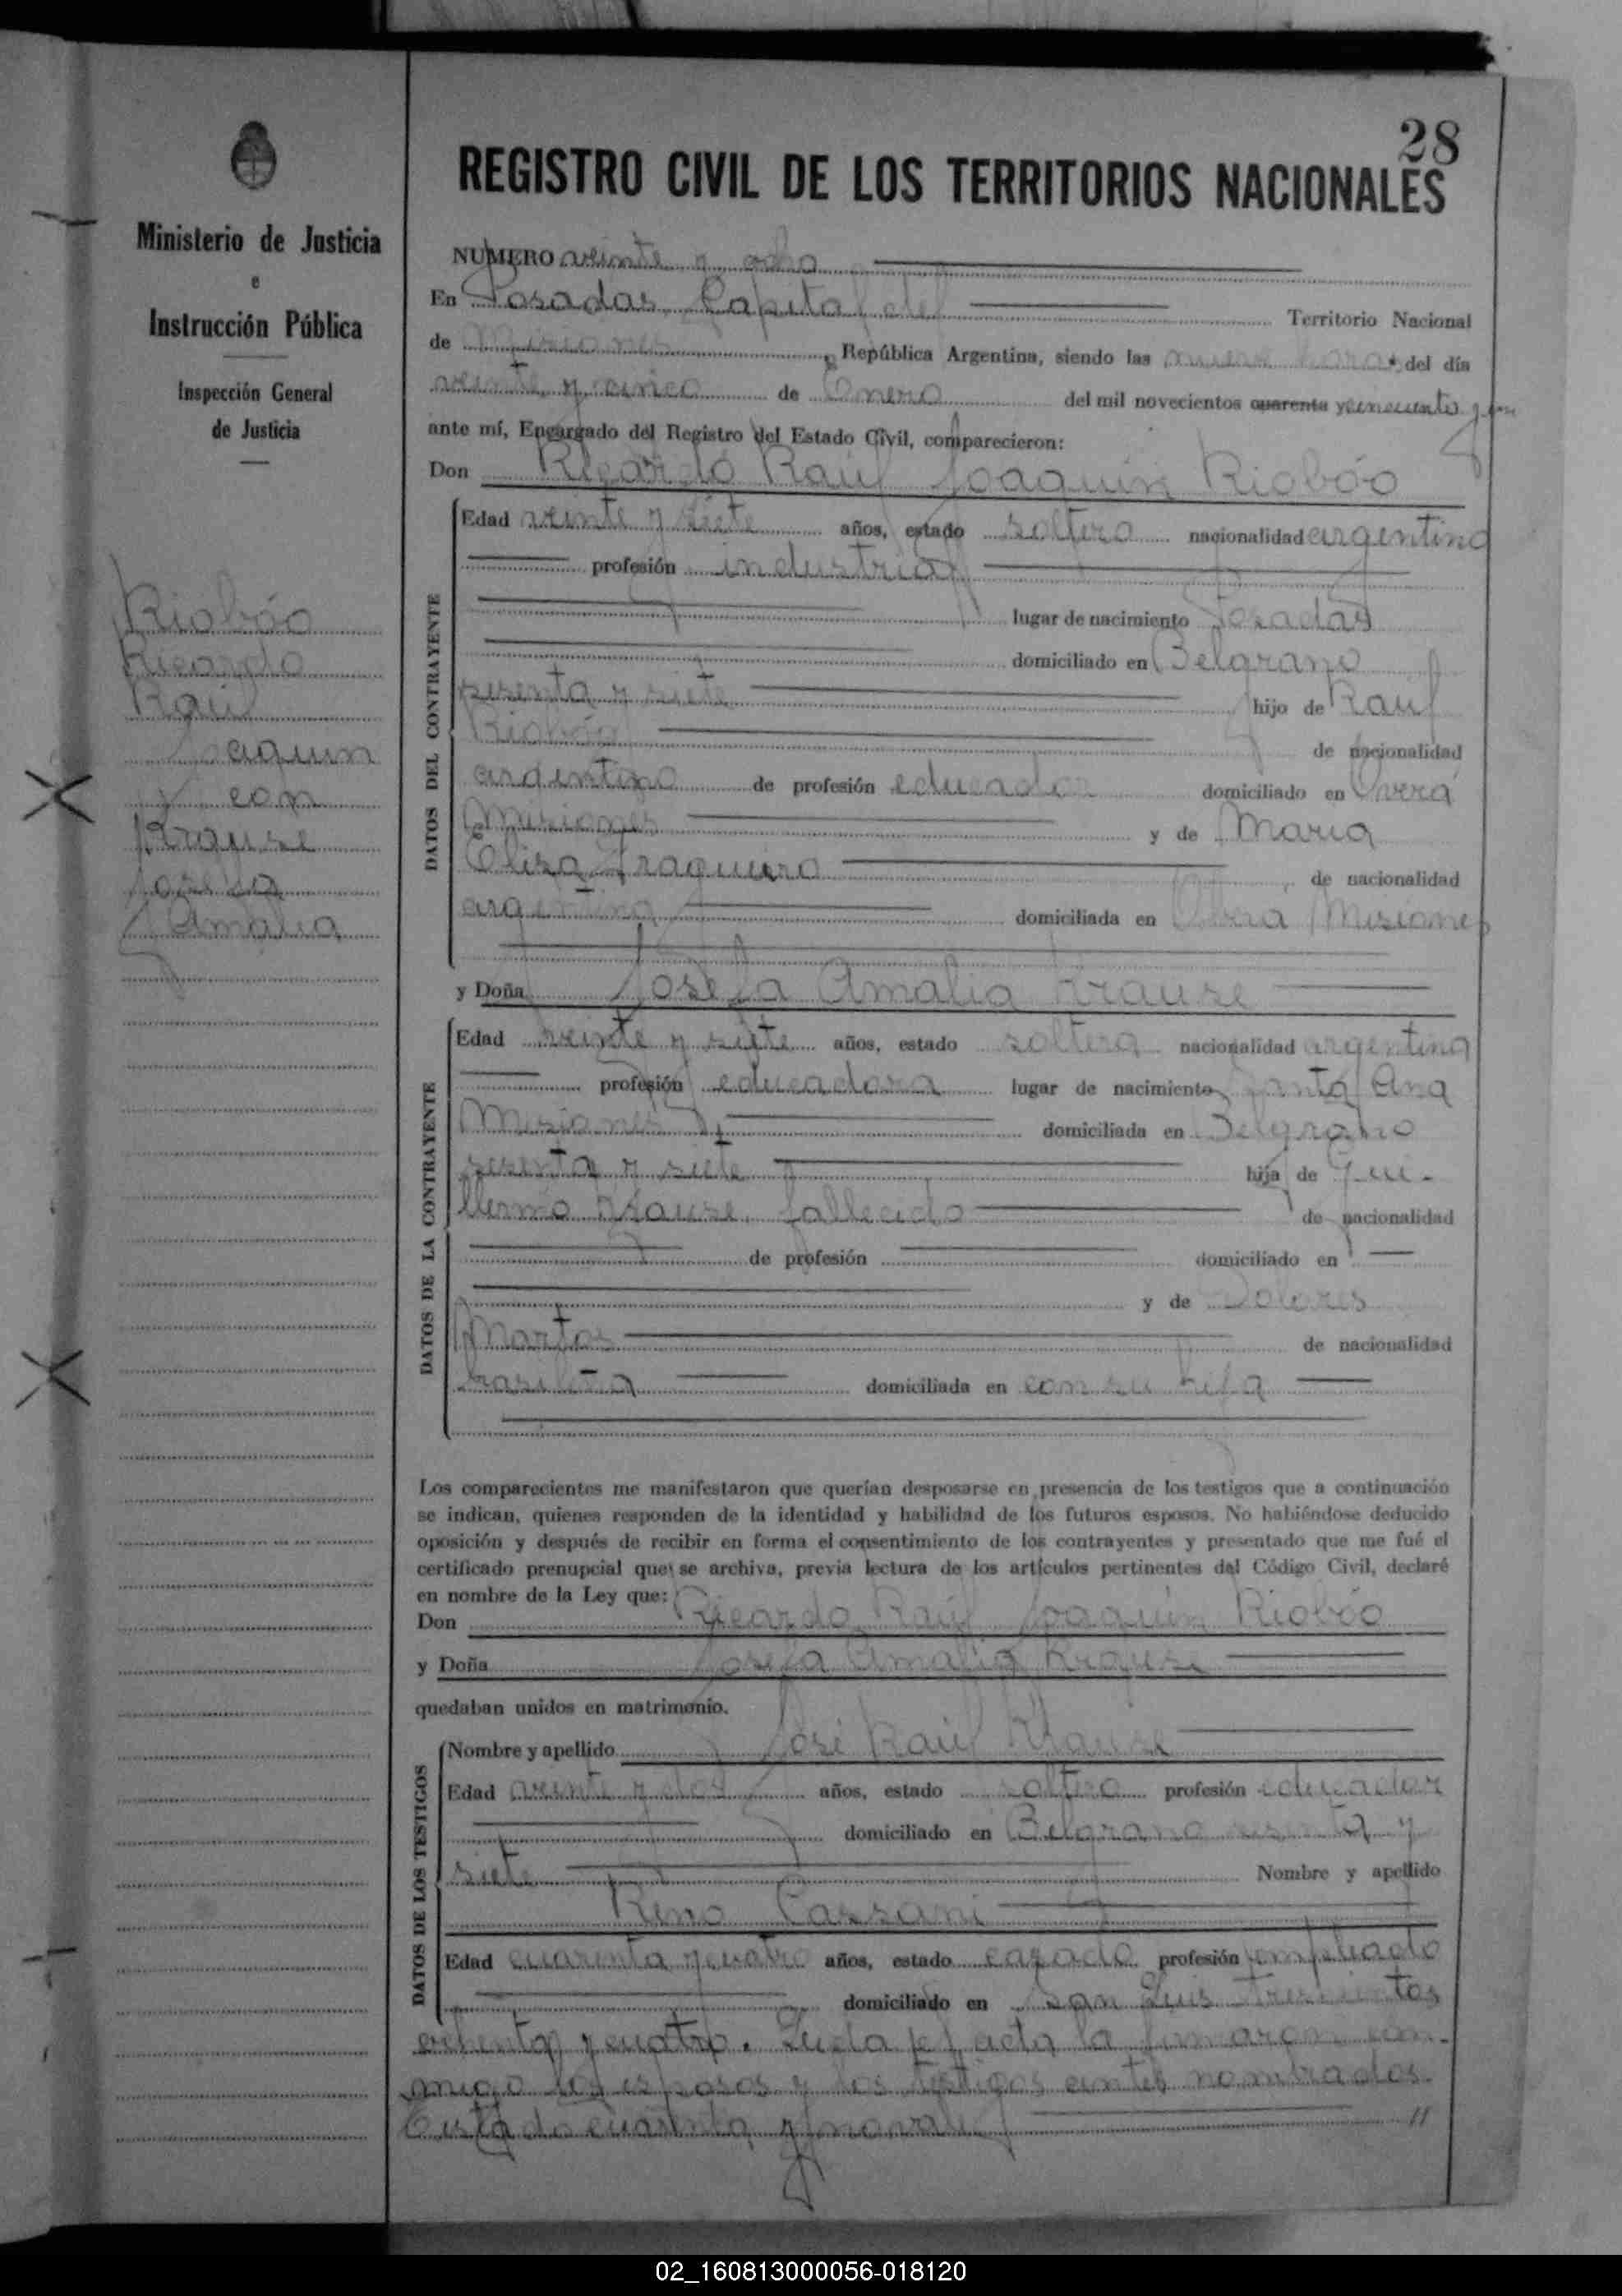 28
REGISTRO CIVIL DE LOS TERRITORIOS NACIONALES
Ministerio de Justicia
e
Instrucción Pública
Inspección General
de Justicia
Riobóo
Ricardo
Raúl
Joaquin
y con
Krause
Josefa
Amalia
NUMERO veinte y ocho
En Posadas Capital del Territorio Nacional
de Misiones, República Argentina, siendo las nueve horas del día
veinte y cinco de Enero del mil novecientos cuarenta y cincuenta y
ante mí, Encargado del Registro del Estado Civil, comparecieron:
Don Ricardo Raúl Joaquin Riobóo
DATOS DEL CONTRAYENTE
Edad veinte y siete años, estado soltero nacionalidad argentina
profesión industrial
lugar de nacimiento Posadas
domiciliado en Belgrano
sesenta y siete hijo de Raúl
Riobóo de nacionalidad
argentino de profesión educador domiciliado en Overá
Misiones y de Maria
Elisa Fragueiro de nacionalidad
argentina domiciliada en Overa Misiones
y Doña Josefa Amalia Krause
DATOS DE LA CONTRAYENTE
Edad veinte y siete años, estado soltera nacionalidad argentina
profesión educadora lugar de nacimiento Santa Ana
Misiones domiciliada en Belgrano
sesenta y siete hija de Gui-
llermo Krause, fallecido de nacionalidad
de profesión domiciliado en
y de Dolores
Martos de nacionalidad
brasileña domiciliada en con su hija
Los comparecientes me manifestaron que querían desposarse en presencia de los testigos que a continuación
se indican, quienes responden de la identidad y habilidad de los futuros esposos. No habiéndose deducido
oposición y después de recibir en forma el consentimiento de los contrayentes y presentado que me fué el
certificado prenupcial que se archiva, previa lectura de los artículos pertinentes del Código Civil, declaré
en nombre de la Ley que:
Don Ricardo Raúl Joaquín Riobóo
y Doña Josefa Amalia Krause
quedaban unidos en matrimonio.
DATOS DE LOS TESTIGOS
Nombre y apellido José Raúl Krause
Edad veinte y dos años, estado soltero profesión educador
domiciliado en Belgrano sesenta y
siete Nombre y apellido
Remo Cassani
Edad cuarenta y cuatro años, estado casado profesión empleado
domiciliado en San Luis trescientos
ochenta y cuatro. Leida el acta la firmaron con-
migo los esposos y los testigos antes nombrados.
cuarenta y
02_160813000056-018120